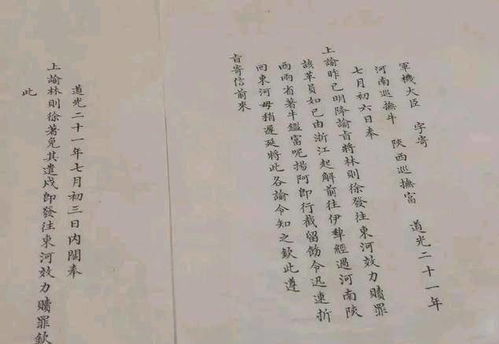 軍機大臣 字寄
河南巡撫牛 陝西巡撫富 道光二十一年
七月初六日奉
上諭昨已明降諭旨將林則徐發往東河效力贖罪
該革員如已由浙江起解前往伊犂經過河南陝
西兩省著牛鑑富呢揚阿即行截留飭令迅速折
回東河毋稍遲延將此各諭令知之欽此遵
旨寄信前來
道光二十一年七月初三日內閣奉
上諭林則徐著免其遣戍即發往東河效力贖罪欽
此